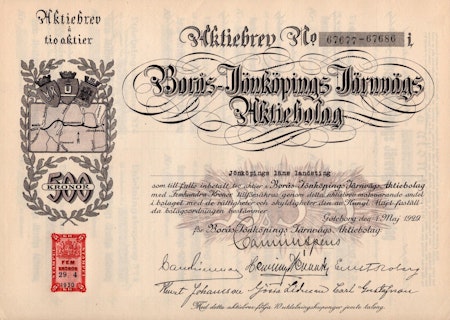 Aktiebrev
å
tio aktier
Aktiebrev No 67677-67686 i
Borås-Jönköpings Järnvägs
Aktiebolag
500
KRONOR
Jönköpings läns landsting
som till fullo inbetalt tio aktier i Borås-Jönköpings Järnvägs Aktiebolag
med Femhundra Kronor tillförsäkras genom detta aktiebrev motsvarande andel
i bolaget med de rättigheter och skyldigheter den av Kungl. Maj:t fastställ-
da bolagsordningen bestämmer.
Göteborg den 1 Maj 1929
för Borås-Jönköpings Järnvägs Aktiebolag:
FEM
KRONOR
29 4
1930
Kurt Johansson Gösta Carl Gustafson
Med detta aktiebrev följa 10 utdelningskuponger jemte talong.